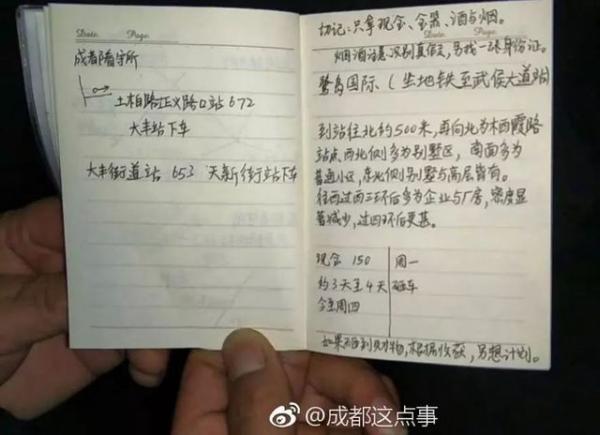 Date. Page.
成都看守所
土桥路正义路口站 672
大丰站下车
大丰街道站 653 天新街站下车
Date. Page.
切记:只拿现金、金器、酒与烟。
烟酒注意识别真假,另找一张身份证。
鹭岛国际、(坐地铁至武侯大道站)
到站往北约500米,再向北为木西霞路
站点,西北侧多为别墅区,南面多为
普通小区,东北侧别墅与高层皆有。
往西过西三环后多为企业与厂房,密度显
著减少,过四环后更甚。
现金 150 周一
约3天至4天 砸车
今至周四
如果不到财物,根据收获,另想计划。
@成都这点事